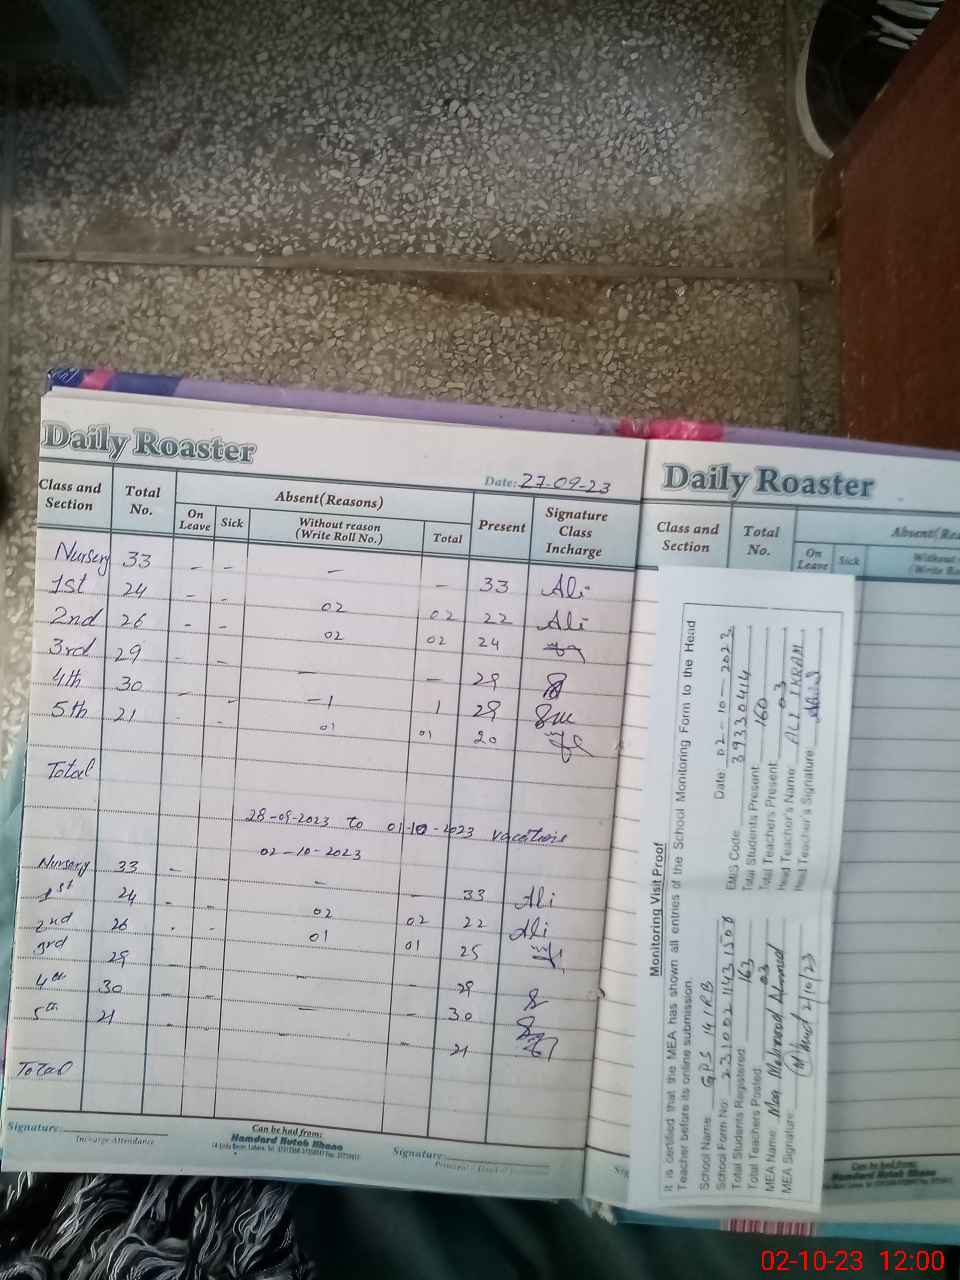 Daily Roaster
Date: 27-09-23
Class and Section Total No. Absent (Reasons) Present Signature Class Incharge
On Leave Sick Without reason (Write Roll No.) Total
Nursery 33 - - - - 33 Ali
1st 24 - - 02 02 22 Ali
2nd 26 - - 02 02 24
3rd 29 - - - - 29
4th 30 - - -1 1 29
5th 21 - - 01 01 20
Total
28-09-2023 to 01-10-2023 vacations
02-10-2023
Nursery 33 - - - 33 Ali
1st 24 - - 02 02 22 Ali
2nd 26 - - 01 01 25
3rd 29 - - - 29
4th 30 - - 30
5th 21 - - - 21
Total
Signature:
Incharge Attendance
Can be had from:
Hamdard Kutab Khana
Signature:
Daily Roaster
Class and Section Total No. Absent( Rea
On Leave Sick Without
(Write Ro
Monitoring Visit Proof
It is certified that the MEA has shown all entries of the School Monitoring Form to the Head
Teacher before its online submission.
Date: 02-10-2023
School Name: GPS 141RB
EMIS Code: 39330414
School Form No:
Total Students Present: 160
Total Students Registered: 163
Total Teachers Present: 03
Total Teachers Posted: 03
Head Teacher's Name: ALI IKRAM
MEA Name: Mehmood Ahmad
Head Teacher's Signature:
MEA Signature: 2/10/23
Can be had from:
Hamdard Kutab Khana
02-10-23 12:00